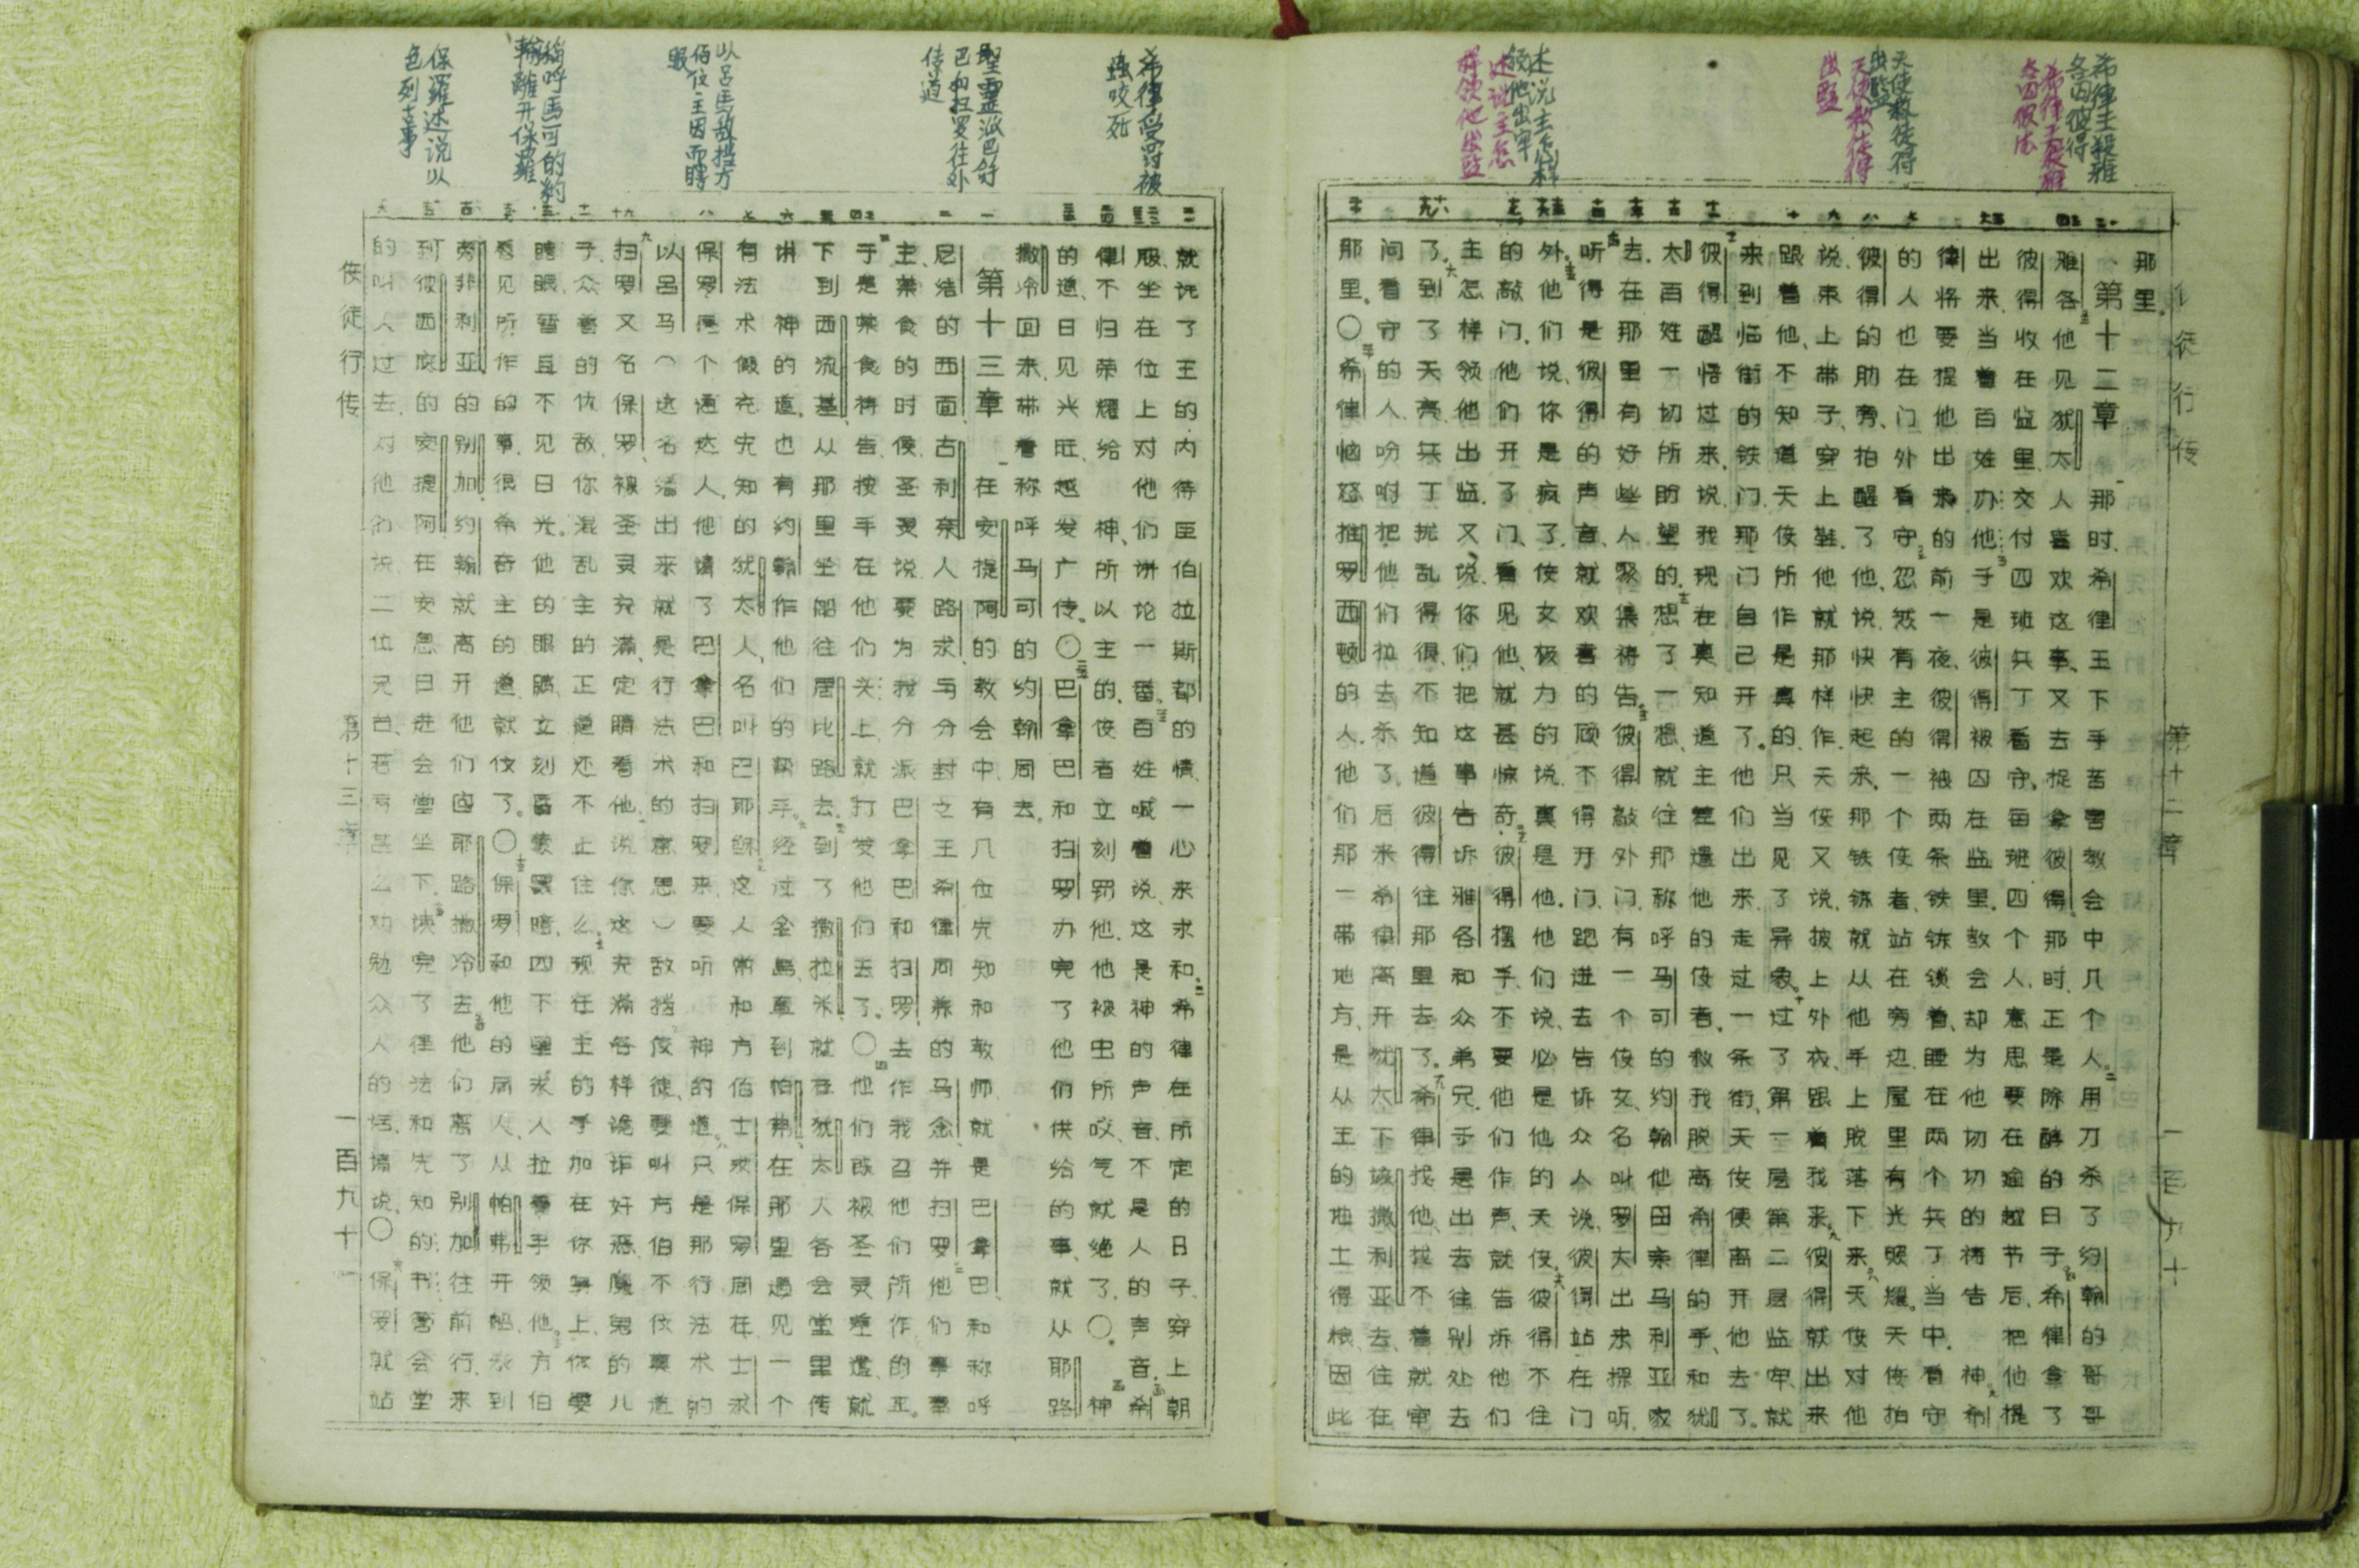 希律王殺雅各囚彼得
希律王殺雅
天使救彼得出監
天使救彼得出監
述说主怎样领他出牢
述说主怎样领他出監
使徒行传　第十二章　一百九十
那里。
第十二章　那时、希律王下手苦害教会中几个人。用刀杀了约翰的哥哥
雅各他见犹太人喜欢这事、又去捉拿彼得。那时正是除酵的日子希律拿了
彼得收在监里交付四班兵丁看守、每班四个人意思要在逾越节后、把他提
出来当着百姓办他于是彼得被囚在监里。教会却为他切切的祷告　神希
律将要提他出来的前一夜、彼得被两条铁链锁着、睡在两个兵丁当中。看守
的人也在门外看守忽然有主的一个使者、站在旁边屋里有光照耀。天使拍
彼得的肋旁、拍醒了他、说、快快起来、那铁链就从他手上脱落下来天使对他
说、束上带子、穿上鞋、他就那样作、天使又说、披上外衣跟着我来。彼得就出来
跟着他、不知道天使所作是真的、只当见了异象。过了第一层第二层监牢、就
来到临街的铁门、那门自己开了。他们出来走过一条街、天使便离开他去了。
彼得醒悟过来、说、我现在真知道主差遣他的使者、救我脱离希律的手、和犹
太百姓一切所盼望的。想了一想、就往那称呼马可的约翰他母亲马利亚家
去、在那里有好些人聚集祷告彼得敲外门、有一个使女、名叫罗大出来探听
听得是彼得的声音、就欢喜的顾不得开门、跑进去告诉众人说、彼得站在门
外。他们说、你是疯了、使女极力的说真是他。他们说、必是他的天使。彼得不住
的敲门、他们开了门、看见他、就甚惊奇、彼得摆手、不要他们作声、就告诉他们
主怎样领他出监、又说、你们把这事告诉雅各和众弟兄、于是出去往别处去
了。到了天亮、兵丁扰乱得很、不知道彼得往那里去了。希律找他、找不着、就审
问看守的人、吩咐把他们拉去杀了、后来希律离开犹太、下该撒利亚去、住在
那里。〇希律恼怒推罗西顿的人、他们那一带地方是从王的地土得粮、因此
希律受罚被蟲咬死
聖靈派巴舒巴和扫罗往外传道
以吕馬敌挡方伯使主因而瞎眼
稱呼馬可的約翰離开保羅
保羅述说以色列古事
就说了王的内侍臣伯拉斯都的情、一心来求和、希律在所定的日子、穿上朝
服、坐在位上对他们讲论一番。百姓喊着说、这是神的声音、不是人的声音。希
律不归荣耀给　神、所以主的使者立刻罚他、他被虫所咬、气就绝了。〇　神
的道、日见兴旺、越发广传。〇巴拿巴和扫罗办完了他们供给的事、就从耶路
撒冷回来、带着称呼马可的约翰周去。
第十三章　在安提阿的教会中、有几位先知和教师就是巴拿巴、和称呼
尼结的西面、古利奈人路求、与分封之王希律同养的马念、并扫罗他们事奉
主、禁食的时候、圣灵说、要为我分派巴拿巴和扫罗、去作我召他们所作的工。
于是禁食祷告、按手在他们头上、就打发他们去了。〇他们既被圣灵差遣、就
下到西流基、从那里坐船往居比路去、到了撒拉米、就在犹太人各会堂里传
讲　神的道、也有约翰作他们的帮手。经过全岛、直到帕弗、在那里遇见一个
有法术假充先知的犹太人、名叫巴耶稣、这人常和方伯士求保罗周在、士求
保罗是个通达人、他请了巴拿巴和扫罗来、要听　神的道。只是那行法术的
以吕马（这名繙出来就是行法术的意思）敌挡使徒、要叫方伯不信真道
扫罗又名保罗、被圣灵充满、定睛看他、说你这充满各样诡诈奸恶、魔鬼的儿
子、众善的仇敌、你混乱主的正道还不止住么。现在主的手加在你身上、你要
瞎眼、暂且不见日光。他的眼睛立刻昏蒙黑暗、四下里求人拉着手领他。方伯
看见所作的事、很希奇主的道、就信了。〇保罗和他的同人、从帕弗开船、来到
旁非利亚的别加约翰就离开他们回耶路撒冷去他们离了别加往前行、来
到彼西底的安提阿在安息日进会堂坐下。读完了律法和先知的书管会堂
的叫人过去、对他们说、二位兄台、若有甚么劝勉众人的话、请说。〇保罗就站
使徒行传　第十三章　一百九十一